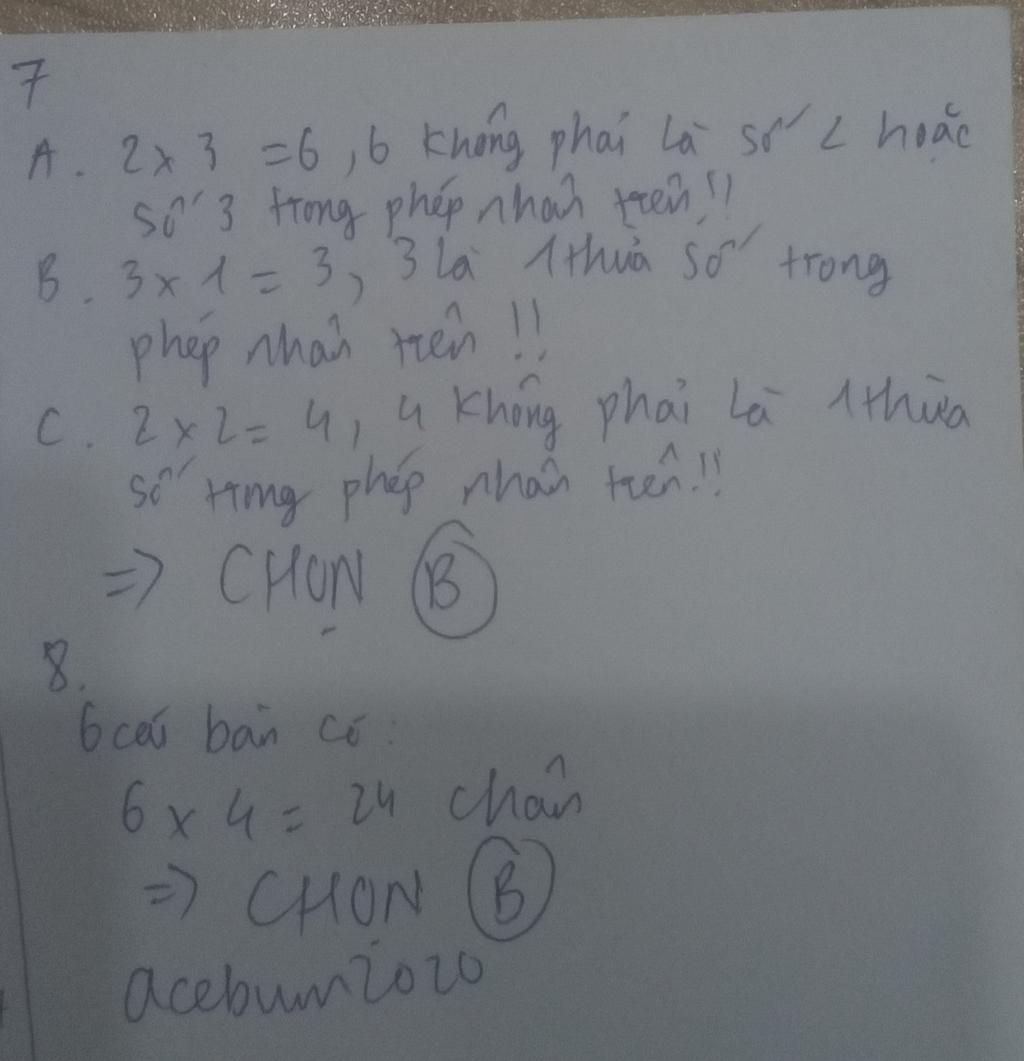 7
A. 2 x 3 = 6, 6 không phải là số 2 hoặc
số 3 trong phép nhân trên!!
B. 3 x 1 = 3, 3 là 1 thừa số trong
phép nhân trên!!
C. 2 x 2 = 4, 4 không phải là 1 thừa
số trong phép nhân trên!!
=> CHỌN B
8.
6 cái bàn có:
6 x 4 = 24 chân
=> CHỌN B
acebum2020